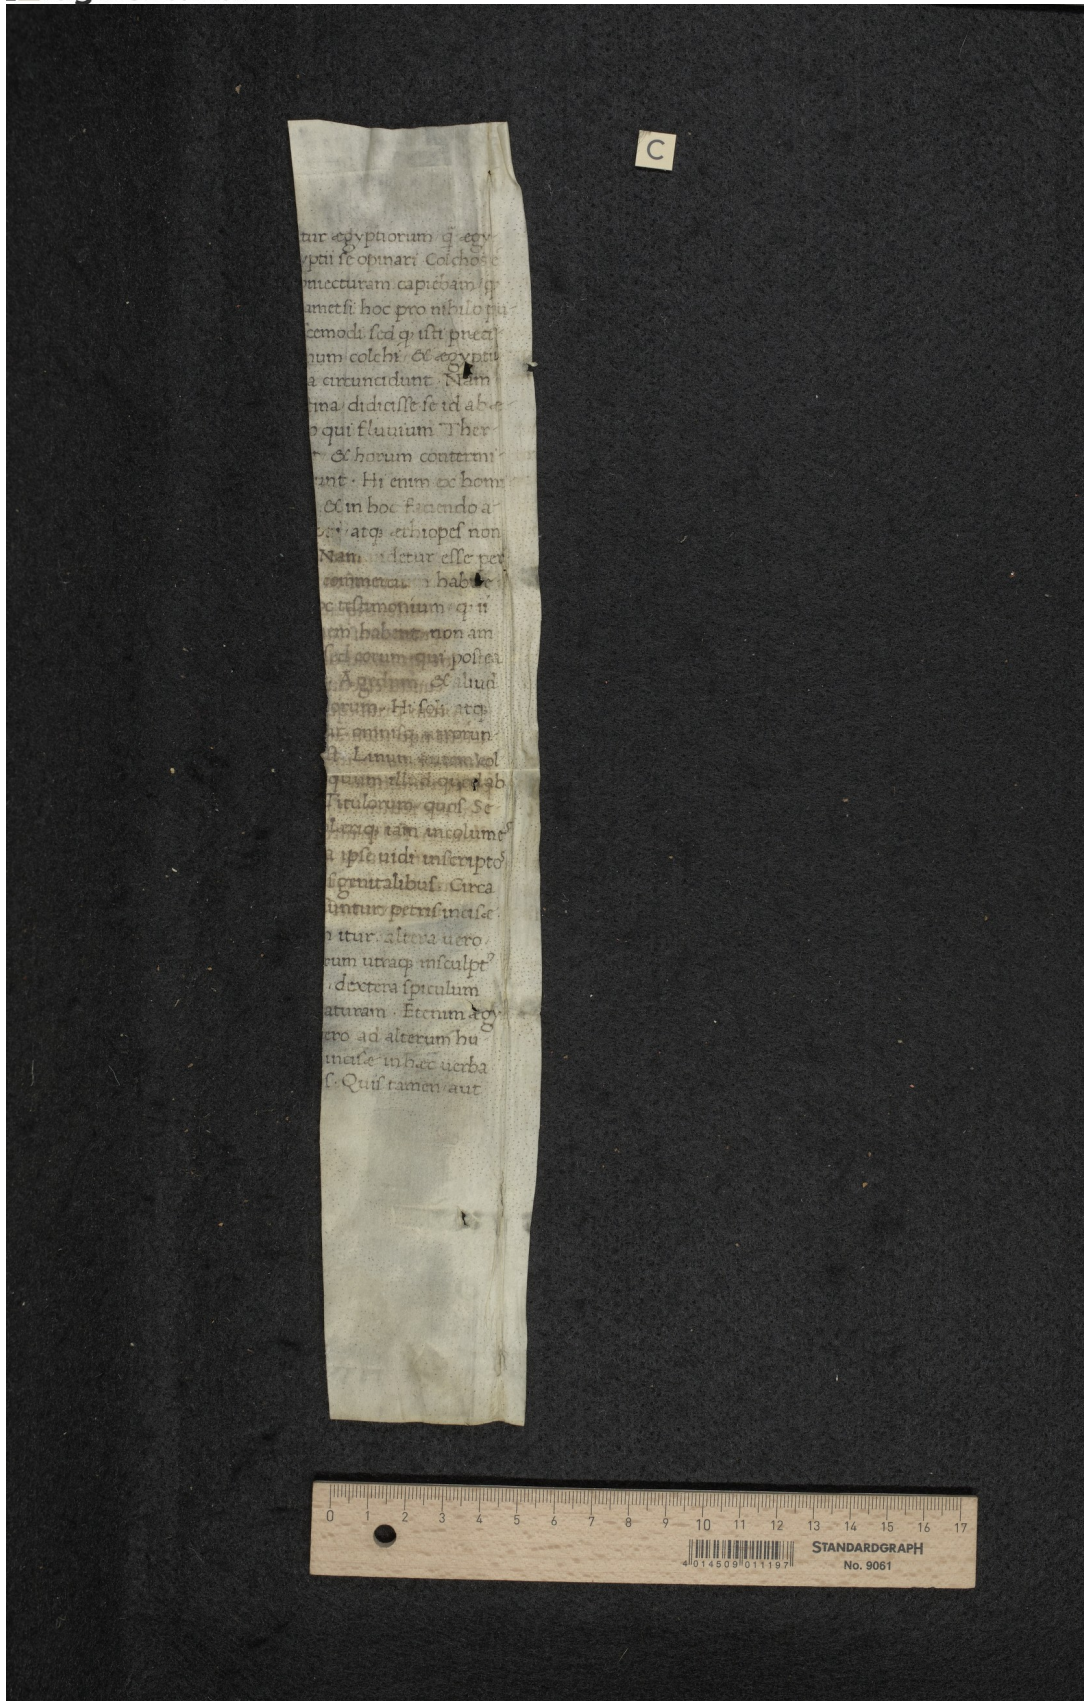 C
tur ægyptiorum q̃ ægy-
yptii se opinari Colchos e
oniecturam capiebam q
ametsi hoc pro nihilo pu-
cemodi sed q isti præci-
num colchi & ægyptii
a circuncidunt. Nam
tina didicisse se id ab æ-
o qui fluuium Ther-
& horum contermi-
unt. Hi enim ex homi
& in hoc faciendo a-
atq ethiopes non
Nam uidetur esse per
commertium habuise
oc testimonium q ii
em habent non am
sed eorum qui postea
Agedum & aliud
orum. Hi soli atq
ut omnisq
st. Linum autem col
quum illud quod ab
Titulorum quos Se
leriq iam incolumes
a ipse uidi inscriptos
s genitalibus. Circa
untur petris incisæ
itur. altera uero
cum utraq insculpt
. dextera spiculum
aturam. Etenim ægy-
ero ad alterum hu
incisæ in hæc uerba
s. Quis tamen aut
0 1 2 3 4 5 6 7 8 9 10 11 12 13 14 15 16 17
STANDARDGRAPH
4 014509 011197
No. 9061